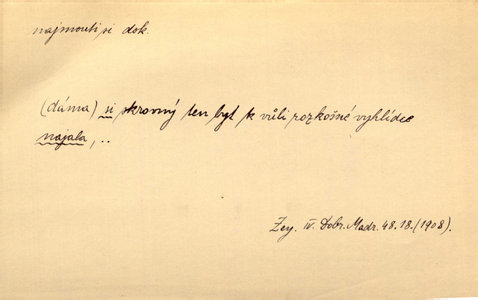 najmouti si dok.
(dáma) si skrovný ten byt k vůli rozkošné vyhlídce
najala,..
Zey. IV. Dobr. Madr. 48.18.(1908).